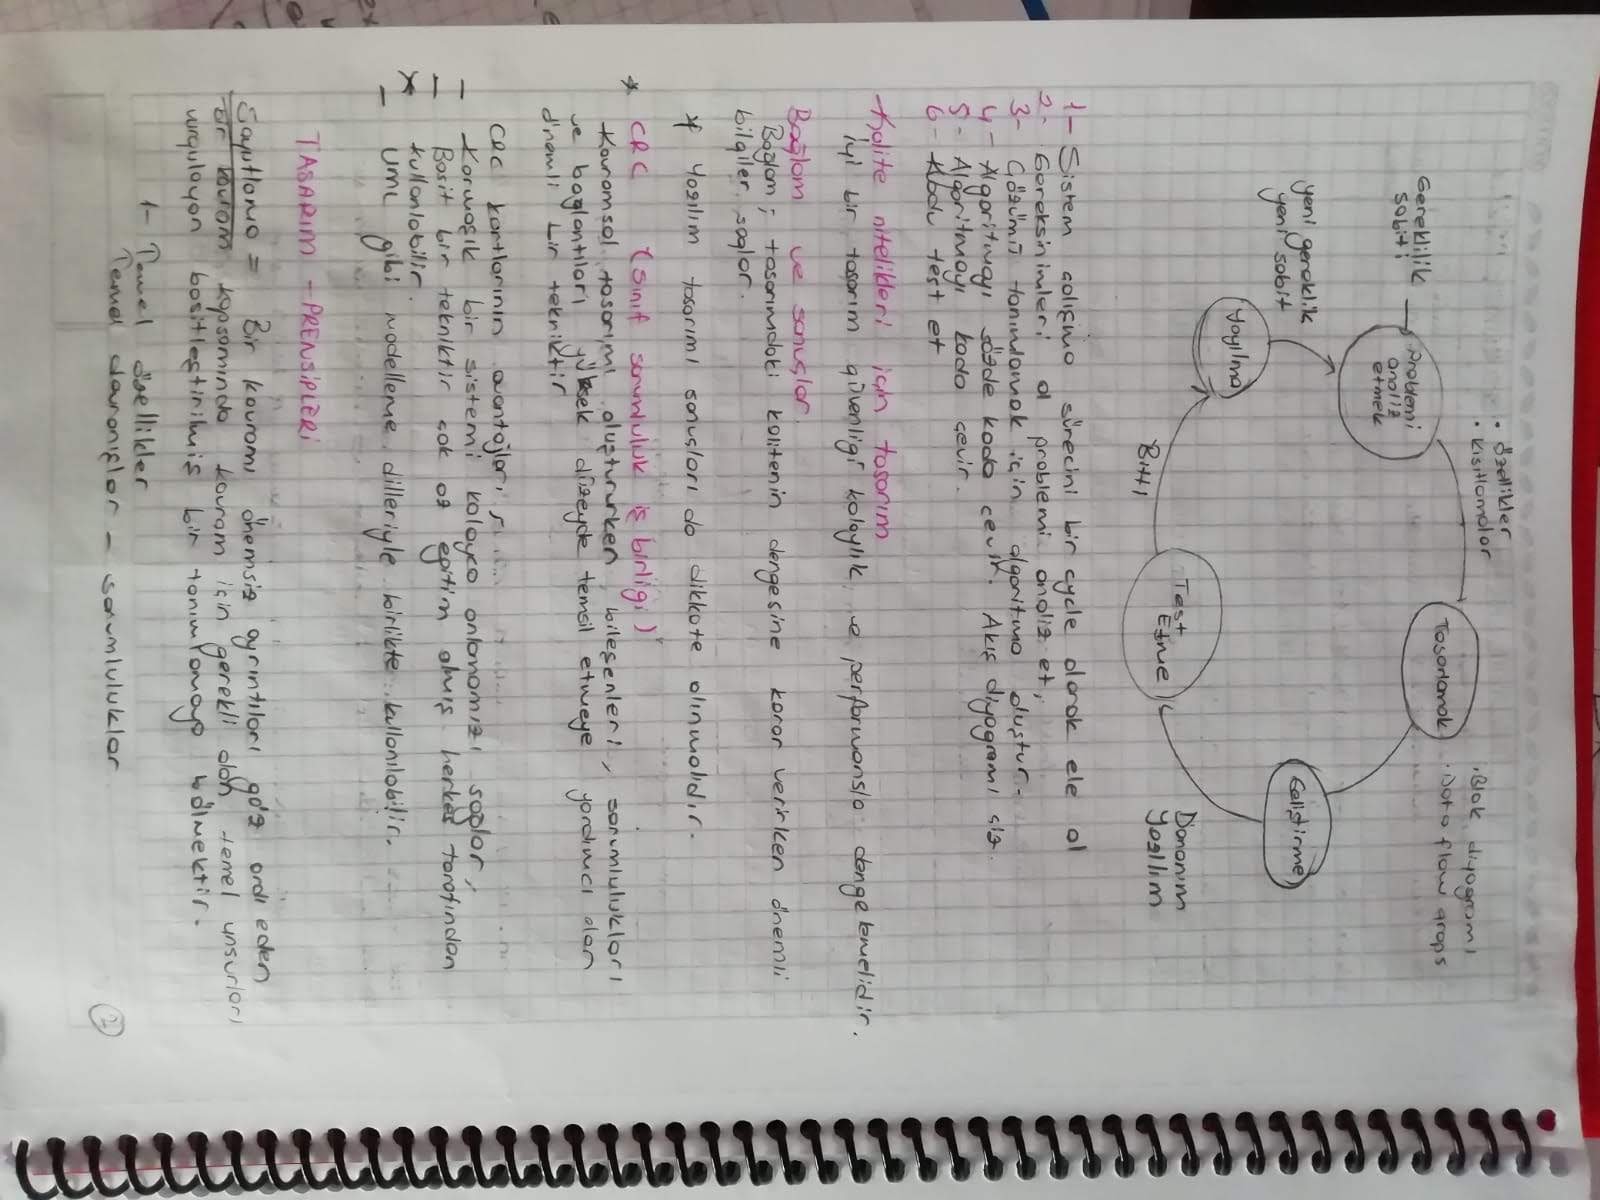 • özellikler
• kısıtlamalar
• Blok diyagramı
• Data flow graps
Gereklilik
sabiti
problemi
analiz
etmek
Tasarlamak
yeni gereklik
yeni sabit
Yayılma
Geliştirme
Bitti
Test
Etme
Donanım
Yazılım
1- Sistem çalışma sürecini bir cycle olarak ele al
2- Gereksinimleri al problemi analiz et,
3- Çözümü tanımlamak için algoritma oluştur.
4- Algoritmayı sözde koda çevir. Akış diyagramı çiz.
5- Algoritmayı koda çevir.
6- Kodu test et
Kalite nitelikleri için tasarım
İyi bir tasarım güvenliği kolaylık ve performansla dengelemelidir.
Bağlam ve sonuçlar
Bağlam; tasarımdaki kalitenin dengesine karar verirken önemli
bilgiler sağlar.
* Yazılım tasarımı sonuçları da dikkate alınmalıdır.
* CRC (sınıf sorumluluk iş birliği)
Kavramsal tasarımı oluştururken bileşenleri, sorumlulukları
ve bağlantıları yüksek düzeyde temsil etmeye yardımcı olan
önemli bir tekniktir
CRC kartlarının avantajları;
- Karmaşık bir sistemi kolayca anlamamızı sağlar,
- Basit bir tekniktir çok az eğitim almış herkes tarafından
* kullanılabilir.
- UML gibi modelleme dilleriyle birlikte kullanılabilir.
TASARIM - PRENSİPLERİ
Soyutlama = Bir kavramı önemsiz ayrıntıları göz ardı eden
bir kavram kapsamında kavram için gerekli olan temel unsurları
vurgulayan basitleştirilmiş bir tanımlamaya bölmektir.
1- Temel özellikler
Temel davranışlar - sorumluluklar
2